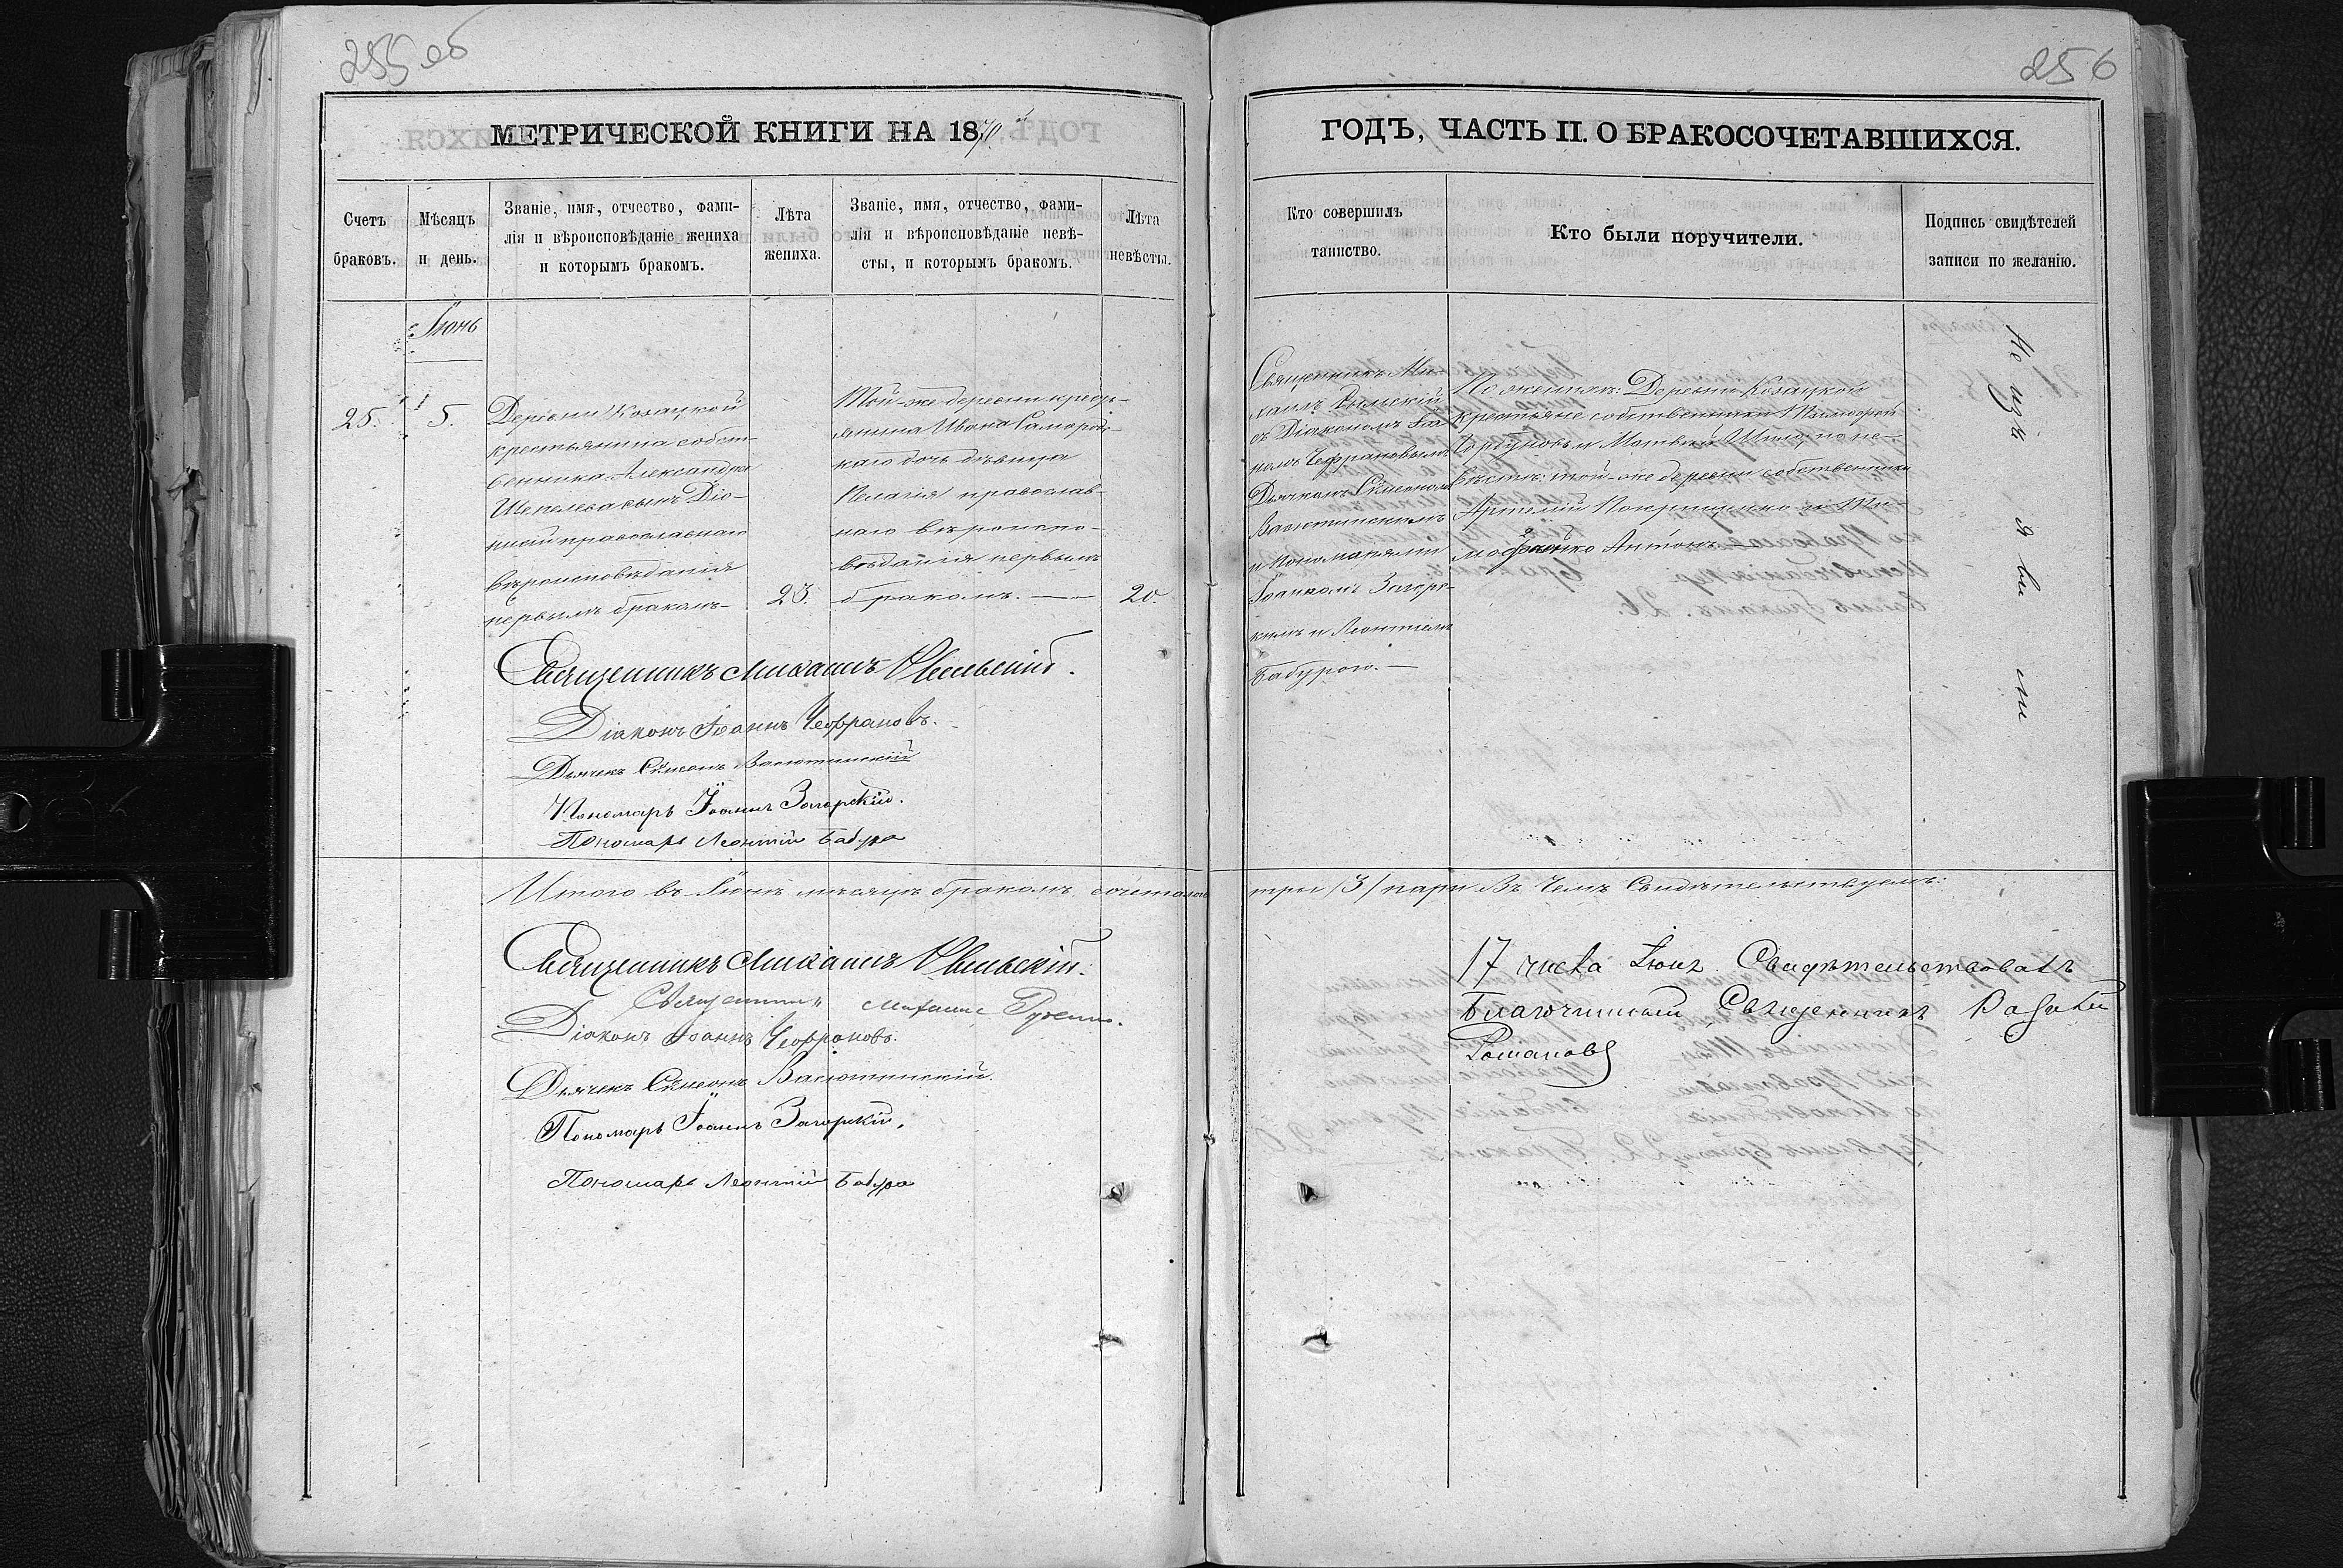 255 об
256
МЕТРИЧЕСКОЙ КНИГИ НА 1870й
ГОДЪ, ЧАСТЬ II. О БРАКОСОЧЕТАВШИХСЯ.
Счетъ
браковъ.
Мѣсяцъ
и день.
Званіе, имя, отчество, фами-
лія и вѣроисповѣданіе жениха
и которымъ бракомъ.
Лѣта
жениха.
Званіе, имя, отчество, фами-
лія и вѣроисповѣданіе невѣ-
сты, и которымъ бракомъ.
Лѣта
невѣсты.
Кто совершилъ
таинство.
Кто были поручители.
Подпись свидѣтелей
записи по желанію.
Іюнь
25.
5.
Деревни Козацкой
крестьянина собст-
венника Александра
Шепелева сынъ Діо-
нисій православнаго
вѣроисповѣданія
первымъ бракомъ
23.
Той-же деревни кресть-
янина Ивана
каго дочь дѣвица
Пелагія православ-
наго вѣроиспо-
вѣданія первымъ
бракомъ.
20.
Священникъ Ми-
хаилъ
съ Діакономъ Іоа
номъ Чефрановымъ
Дьячкомъ Сѵмеономъ
Васютинскимъ
и пономарями
Іоанномъ Загорс-
кимъ и Леонтіемъ
Бабурою.
По женихѣ: Деревни Козацкой
крестьяне собственники Тимофей
и Матвей по не-
вѣстѣ: той-же деревни собственники
Артемій и Ти-
Антонъ
Не изъ я ви ли
Священникъ Михаилъ
Діаконъ Іоаннъ Чефрановъ.
Дьячекъ Сѵмеонъ Васютинскій
Пономарь Іоаннъ Загорскій.
Пономарь Леонтій Бабура
Итого въ Іюнѣ мѣсяцѣ бракомъ сочеталось три /3/ пары въ чемъ свидѣтельствуемъ:
Священникъ Михаилъ
Священникъ Михаилъ
Діаконъ Іоаннъ Чефрановъ.
Дьячекъ Сѵмеонъ Васютинскій.
Пономарь Іоаннъ Загорскій.
Пономарь Леонтій Бабура
17 числа Свидѣтельствовалъ
Благочинный Священникъ
Романовъ